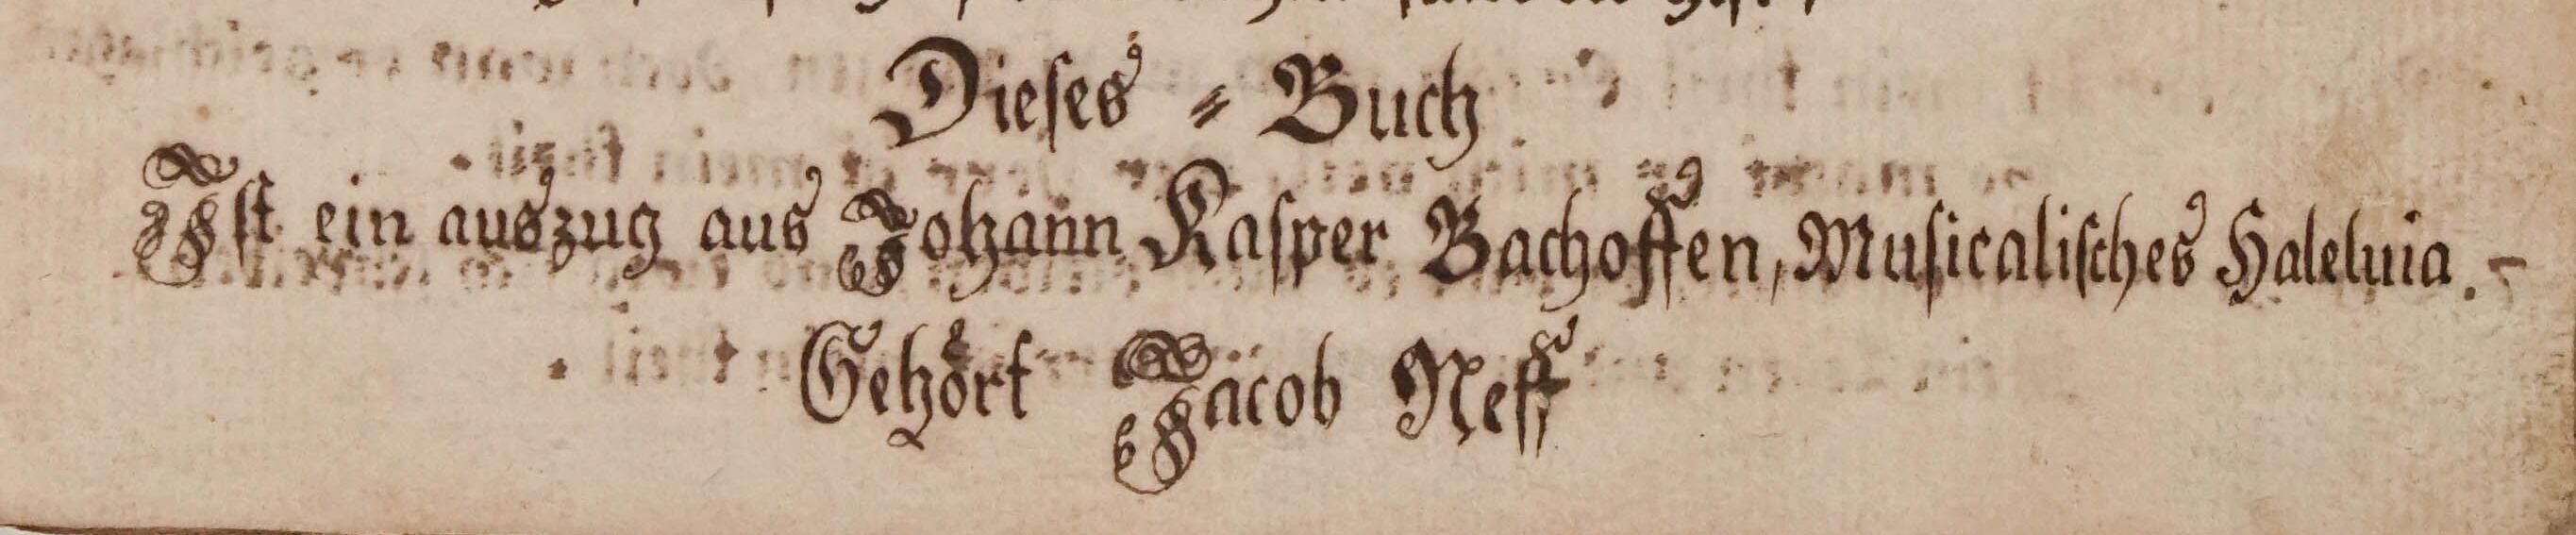 Dieses = Buch
Ist ein auszug aus Johann Kasper Bachoffen, Musicalisches Haleluia.
Gehört Jacob Neff